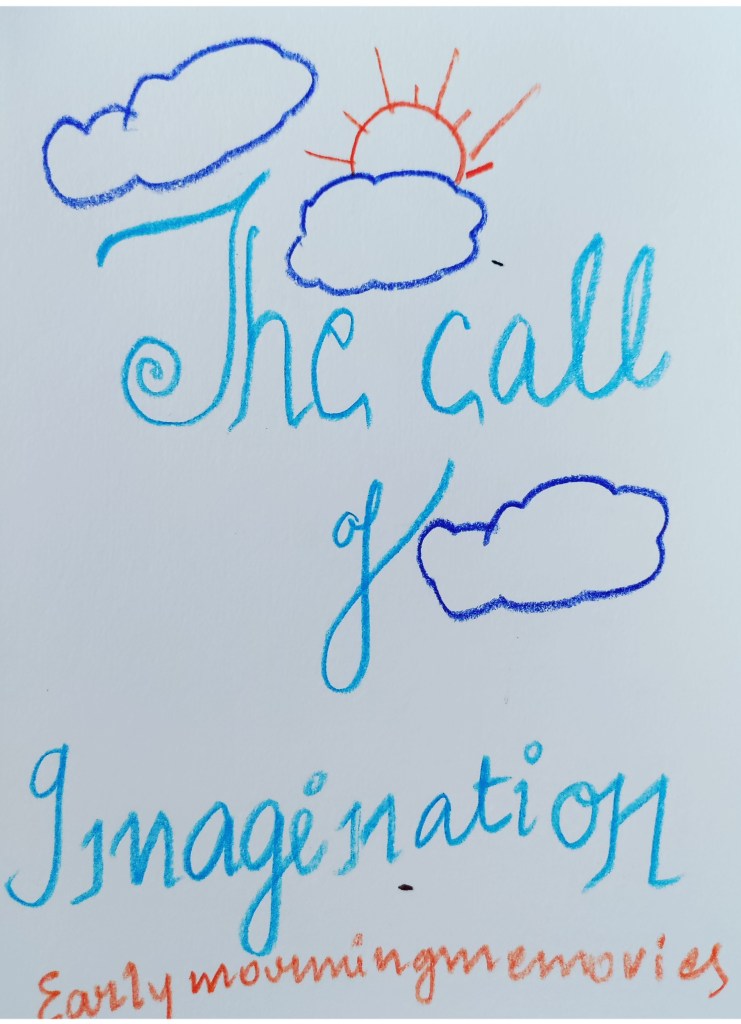 The call
of
Imagination
Early morning memories